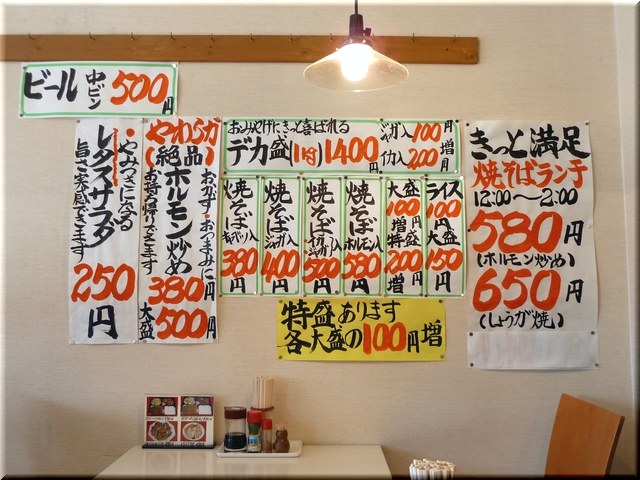 ビール 中ビン 500円
・やみつきになる
レタスサラダ
旨さ実感できます
250円
やわらか
絶品ホルモン炒め
おかず・おつまみに
(お持ち帰りできます)
380円
大盛500円
おみやげにきっと喜ばれる
デカ盛 1400円
ジャガ入100円増
イカ入200円増
焼そば キャベツ入 380円
焼そば ジャガ入 400円
焼そば イカジャガ入 500円
焼そば ホルモン入 580円
大盛100円増
特盛200円増
ライス100円
大盛150円
特盛あります
各大盛の100円増
きっと満足
焼そばランチ
12:00〜2:00
580円
(ホルモン炒め)
650円
(しょうが焼)